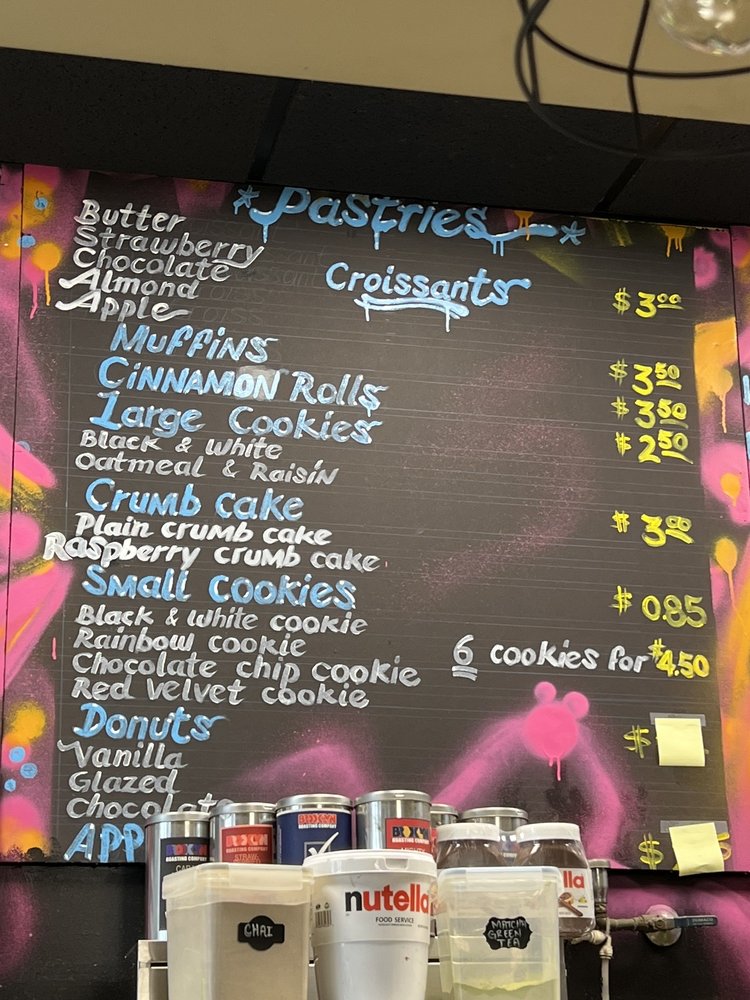 *Pastries*
Butter
Strawberry
Chocolate
Almond
Apple
Croissants $3.00
Muffins $3.50
Cinnamon Rolls $3.50
Large Cookies $2.50
Black & White
Oatmeal & Raisin
Crumb cake $3.00
Plain crumb cake
Raspberry crumb cake
Small Cookies $0.85
Black & White cookie
Rainbow cookie
6 cookies for $4.50
Chocolate chip cookie
Red Velvet cookie
Donuts $
Vanilla
Glazed
Chocolate
APP $
BROOKLYN
ROASTING COMPANY
BROOKLYN
ROASTING COMPANY
BROOKLYN
ROASTING COMPANY
BROOKLYN
ROASTING COMPANY
CHAI
nutella
FOOD SERVICE
MATCHA
GREEN
TEA
lla